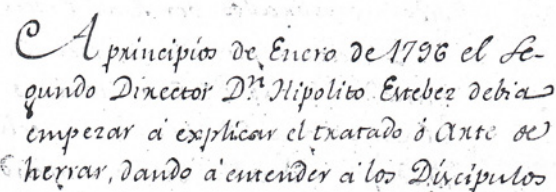 A principios de Enero de 1796 el Se-
gundo Director D.n Hipolito Estebez debia
empezar á explicar el tratado ó Arte de
herrar, dando á entender á los Discipulos